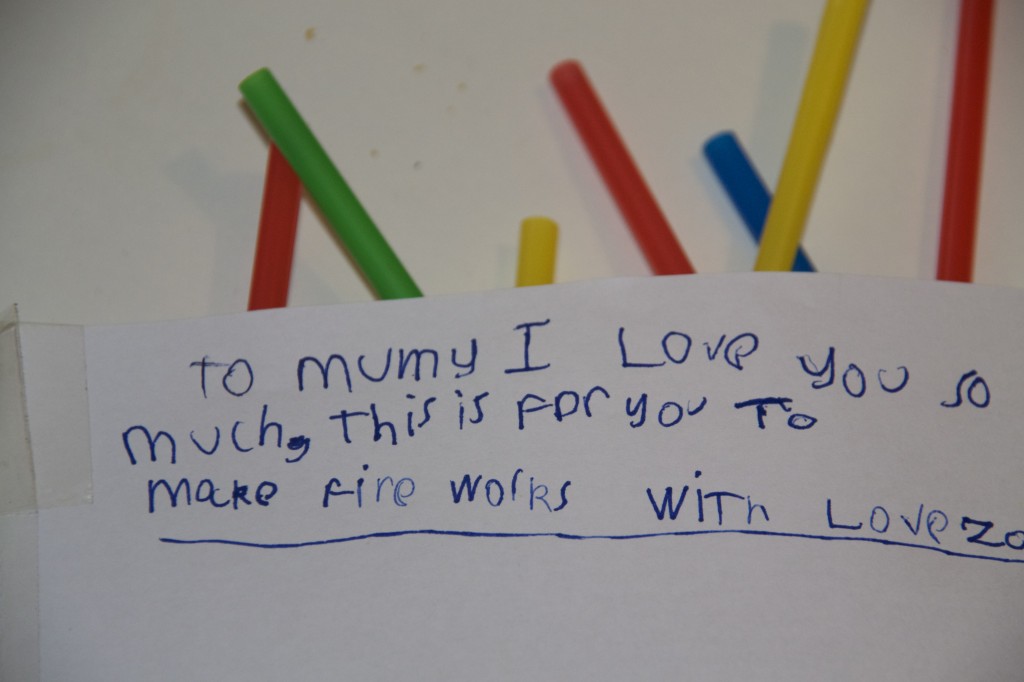 To mumy I Love you so
much, This is For you To
make Fire works with Love